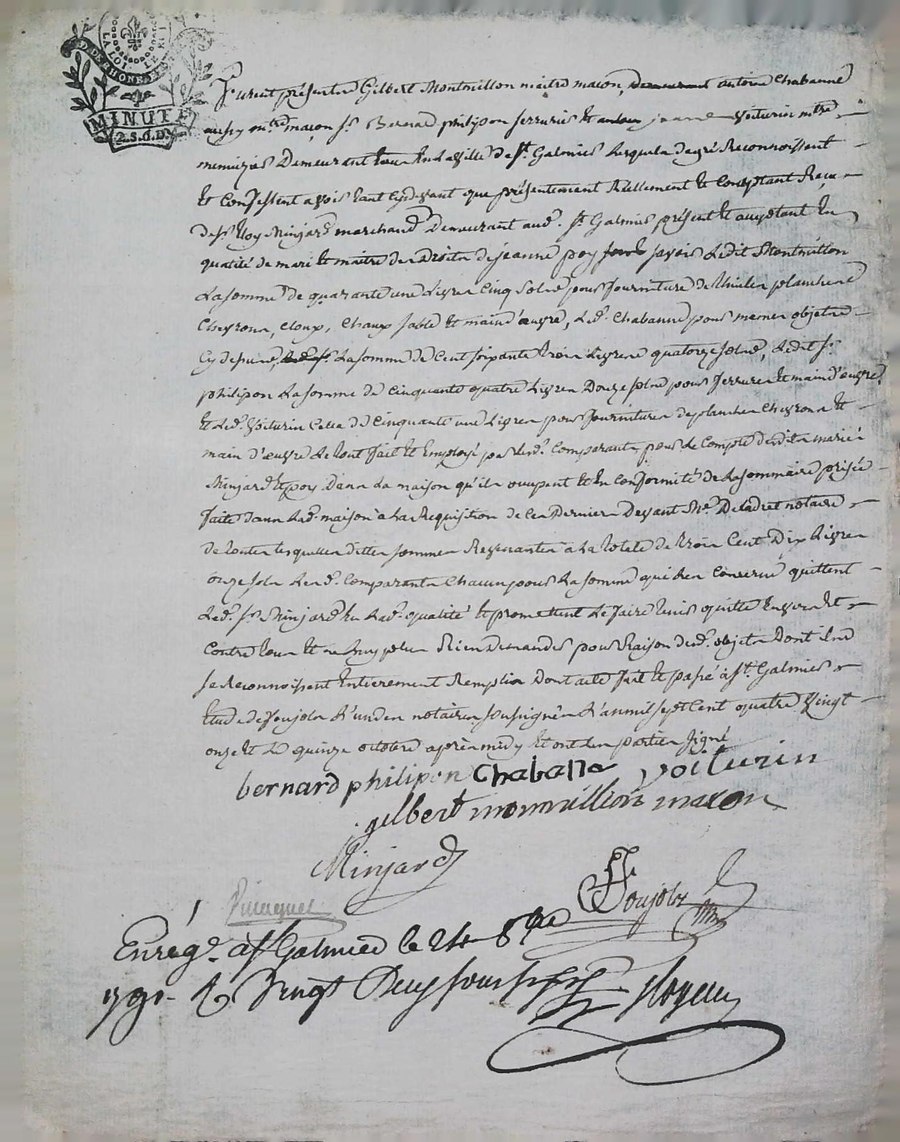 LA LOI LE ROI
MINUTE
2.S.6.D
Furent présents Gilbert Montmillon maitre macon, demeurant antoine Chabanne
aussy mtre maçon Sr Bernard philipon serrurier Et jeanne Voiturin mtre
menuizier Demeurant tous En La Ville de St Galmier Lesquels de gré Reconnoissent
Et Confessent avoir tant Cydevant que présentement Réellement Et Comptant Reçu
de Sr Eloy Minjard marchand Demeurant aud. St Galmier présent Et acceptant En
qualité de mari Et maitre des Droits de jeanne poy savoir Ledit Montmillon
La somme de quarante une Livres Cinq Sols pour fourniture de thuiles planches
Chevrons, cloux, Chaux sable Et main d'euvre, Led. Chabanne pour memes objets
Cy dessus, La somme de Cent soixante trois Livres quatorze sols, Ledit Sr
philipon La somme de Cinquante quatre Livres Douze sols pour serrures Et main d'euvre
Et Led. Voiturin Celle de Cinquante une Livres pour fournitures de planches Chevrons Et
main d'euvre Le tout fait Et Employé par lesd. Comparants pour Le Compte desdits mariés
Minjard Et poy Dans La maison qu'ils occupent Et En Conformité de La sommaire prisée
faite dans Lad. maison à La Requisition de Ces Derniers Devant Me Deladret notaire
de toutes Lesquelles dittes sommes Revenantes à La totale de trois Cent Dix Livres
onze sols Lesd. Comparants Chacun pour La somme qui Les Concerne quittent
Led. Sr Minjard En Lad. qualité Et promettent Le faire tenir quitte Envers Et
Contre tous Et ne Luy plus Rien Demander pour Raison desd. objets Dont ils
se Reconnoissent Entierement Remplis Dont acte fait Et passé à St Galmier
Etude de Soujols L'un des notaires soussignés L'an mil sept Cent quatre Vingt
onze Et Le quinze octobre après midy Et ont Les parties signé
bernard philipon Chabanne voiturin
gilbert montmillion mason
Minjard
Soujols
Enrég. à St Galmier le 24 8bre
1791. R Vingt Deux sous six